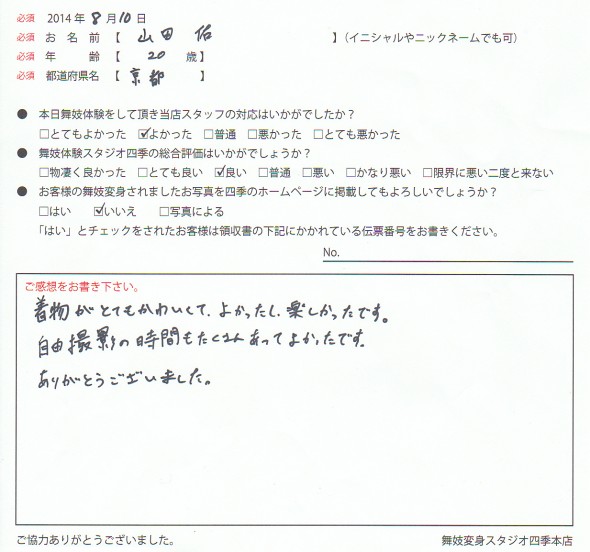 必須 2014年 8月10日
必須 お名前【 山田 佑 】(イニシャルやニックネームでも可)
必須 年 齢【 20 歳】
必須 都道府県名【 京都 】
● 本日舞妓体験をして頂き当店スタッフの対応はいかがでしたか?
□とてもよかった ☑よかった □普通 □悪かった □とても悪かった
● 舞妓体験スタジオ四季の総合評価はいかがでしょうか?
□物凄く良かった □とても良い ☑良い □普通 □悪い □かなり悪い □限界に悪い二度と来ない
● お客様の舞妓変身されましたお写真を四季のホームページに掲載してもよろしいでしょうか?
□はい ☑いいえ □写真による
「はい」とチェックをされたお客様は領収書の下記にかかれている伝票番号をお書きください。
No.
ご感想をお書き下さい。
着物がとてもかわいくて、よかったし、楽しかったです。
自由撮影の時間もたくさんあってよかったです。
ありがとうございました。
ご協力ありがとうございました。
舞妓変身スタジオ四季本店